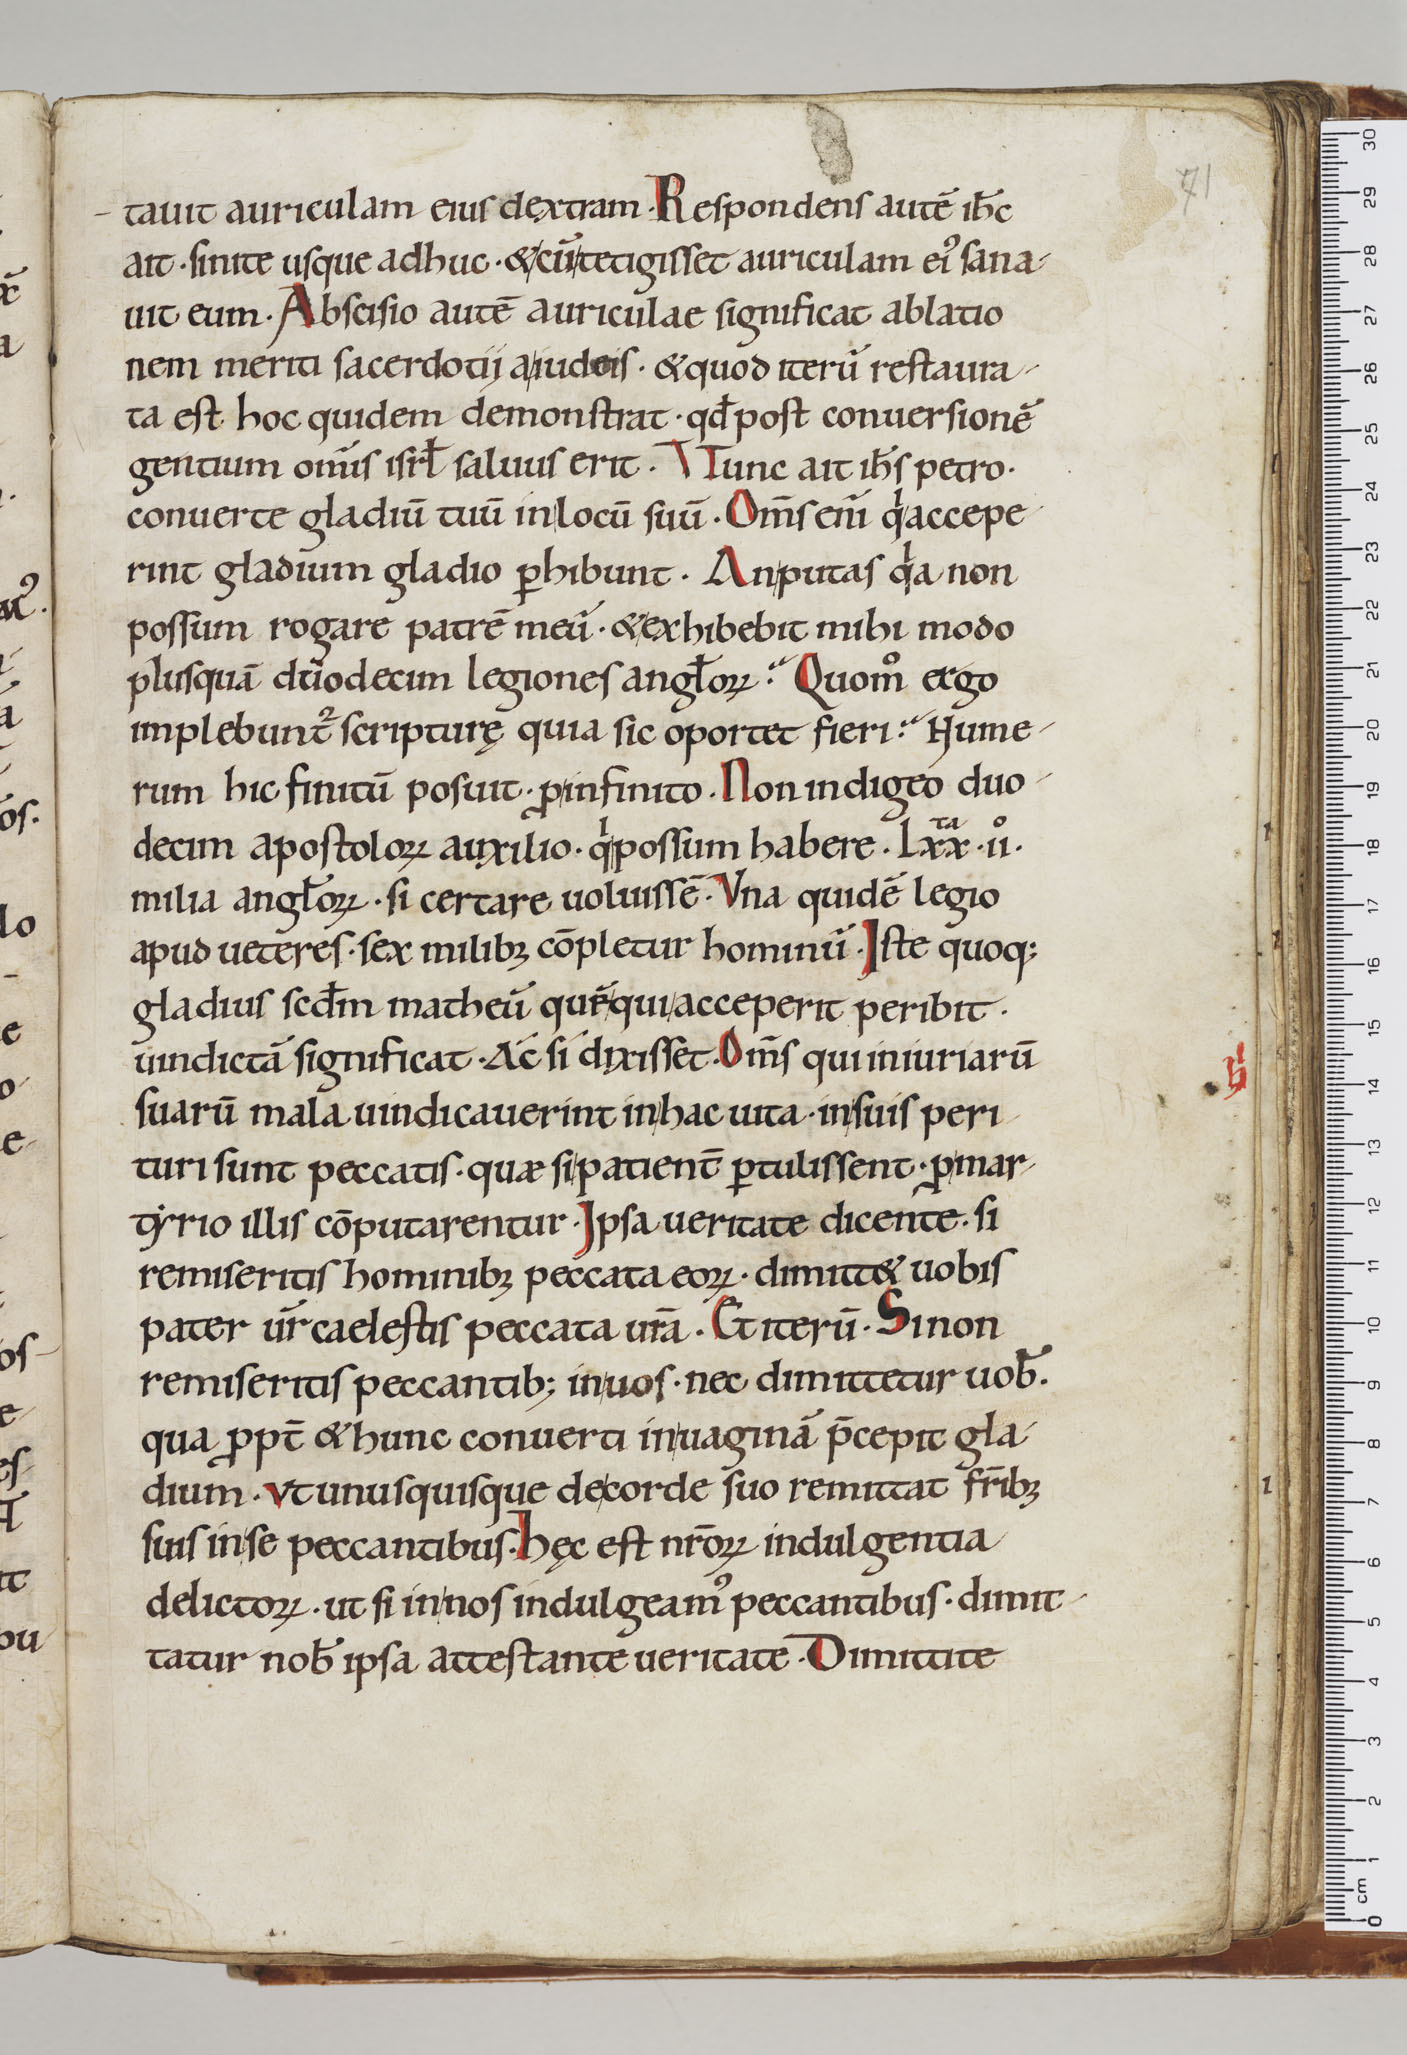 71
tauit auriculam eius dextram. Respondens autē ih̄c
ait · sinite usque adhuc · & cū tetigisset auriculam ei᾽ sana-
uit eum. Abscisio autē auriculae significat ablatio
nem meriti sacerdotij a iudeis · & quod iterū restaura-
ta est hoc quidem demonstrat · qđ post conuersionē
gentium om̄is isrł saluus erit. Tunc ait ih̄s petro.
conuerte gladiū tuū in locū suū. Om̄s enī qi accepe-
rint gladium gladio ꝑhibunt. An putas qia non
possum rogare patrē meū · & exhibebit mihi modo
plusquā duodecim legiones angłoꝝ? Quom̊ ergo
implebunt᾽ scripturę quia sic oportet fieri? Nume-
rum hic finitū posuit · ꝓ infinito. Non indigeo duo-
decim apostoloꝝ auxilio · qi possum habere. Lxx ta · iı̊ ·
milia angłoꝝ · si certare uoluissē. Vna quidē legio
apud ueteres · sex milibꝫ cōpletur hominū. Iste quoq;
gladius scđm matheū quē qui acceperit peribit.
uindictā significat. Ac̄ si dixisset. Om̄s qui iniuriarū
suarū mala uindicauerint in hac uita · in suis peri
turi sunt peccatis · quae si patient̄ ꝑtulissent · ꝓ mar-
tẏrio illis cōputarentur. Ipsa ueritate dicente · si
remiseritis hominibꝫ peccata eoꝝ · dimitt& uobis
pater ur̄ caelestis peccata urā. Et iterū. Si non
remiseritis peccantib; in uos · nec dimittetur uob̄.
qua ꝓpt̄ & hunc conuerti in uaginā p̄cepit gla-
dium. Vt unusquisque de corde suo remittat fr̄ibꝫ
suis in se peccantibus. Hęc est nr̄oꝝ indulgentia
delictoꝝ · ut si in nos indulgeam᾽ peccantibus · dimit-
tatur nob̄ ipsa attestante ueritate. Dimittite